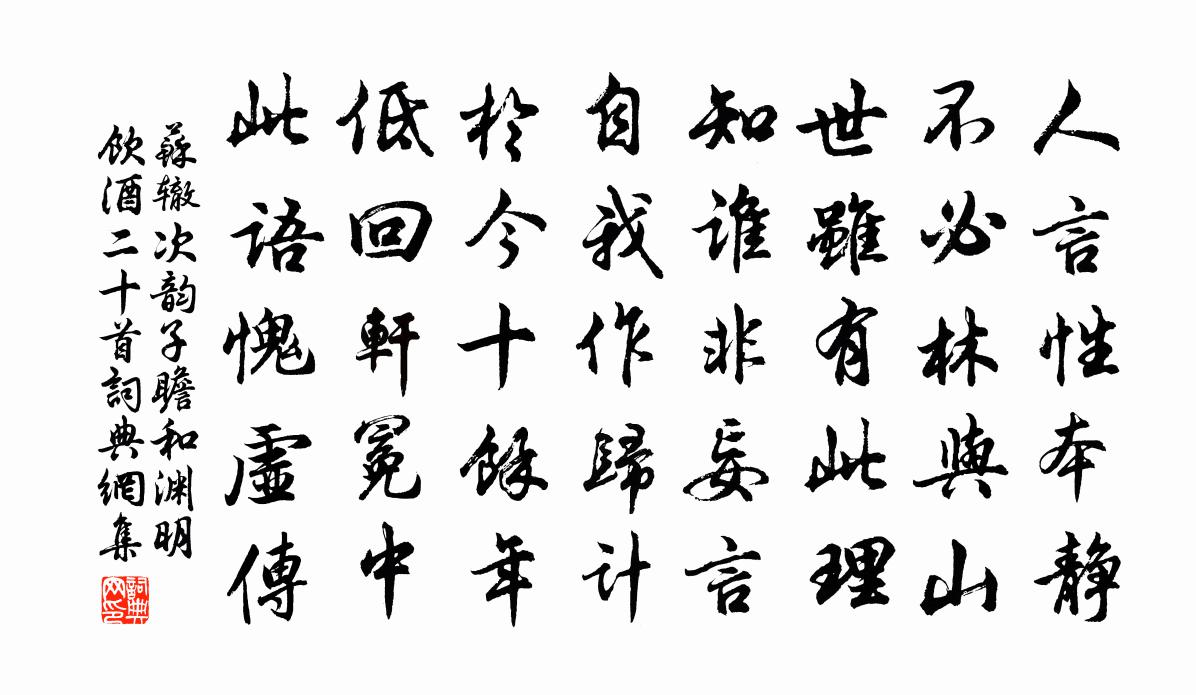 人言性本静
不必林與山
世雖有此理
知誰非妄言
自我作歸计
於今十餘年
低回軒冕中
此語愧虛傳
蘇辙次韵子瞻和渊明
飲酒二十首詞典網集
詞典网印